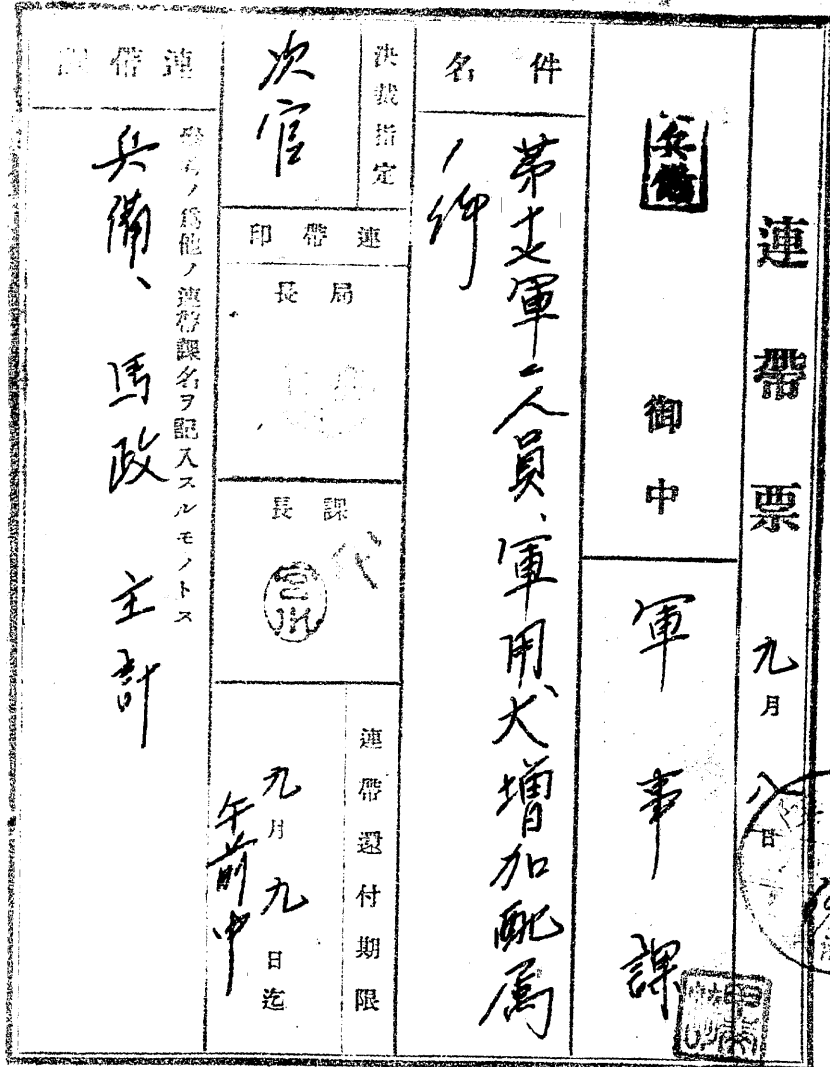 連帶票 九月八日
兵備 御中
軍事課
件名
第十七軍ニ人員、軍用犬増加配属
ノ件
決裁指定
次官
連帶印
局長
課長
代
連帶還付期限
九月九日迄
午前中
連帶課
參考ノ爲他ノ連帶課名ヲ記入スルモノトス
兵備、馬政 主計